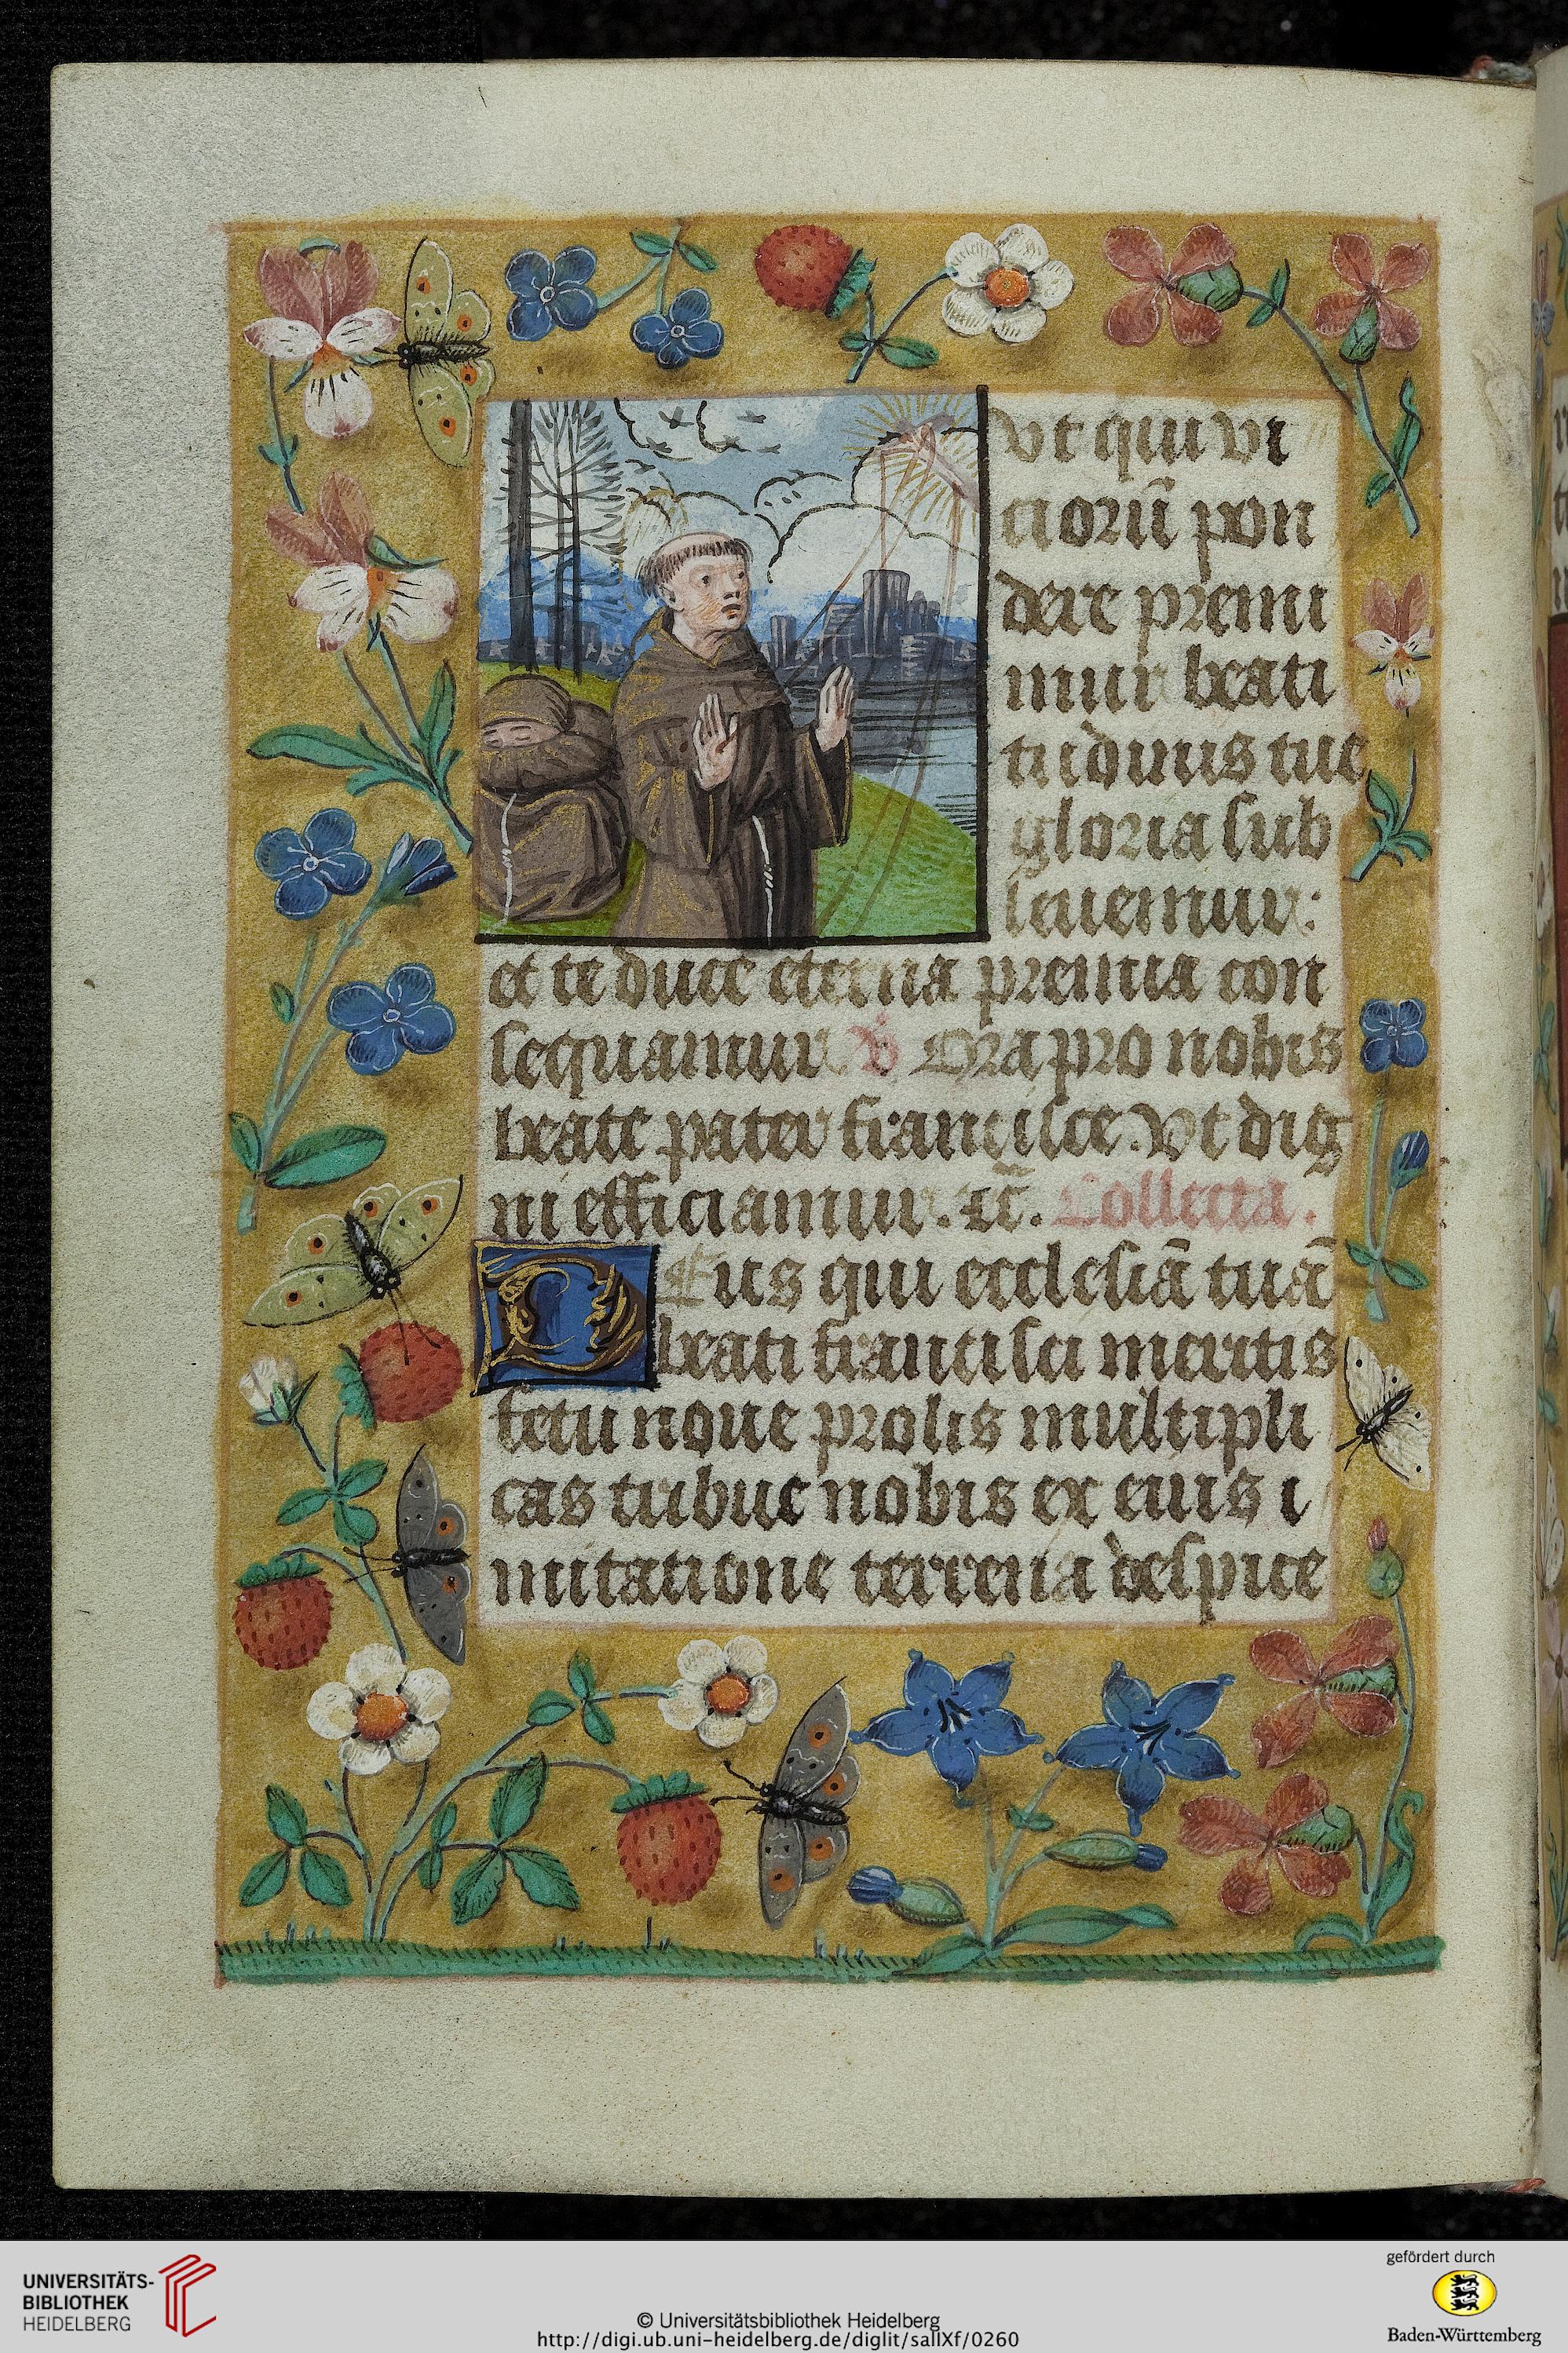 vt qui vi
cioru̅ pon
dere premi
mur beati
tudinis tue
gloria sub
leuemur:
et te duce eterna premia con
sequamur ℣ Ora pro nobis
beate pater francisce. Vt dig
ni efficiamur. ⁊c̅. Collecta.
DEus qui ecclesia̅ tua̅
beati francisci meritis
fetu noue prolis multipli
cas tribue nobis ex eius i
mitatione terrena despice
UNIVERSITÄTS-
BIBLIOTHEK
HEIDELBERG
© Universitätsbibliothek Heidelberg
http://digi.ub.uni-heidelberg.de/diglit/salIXf/0260
gefördert durch
Baden-Württemberg